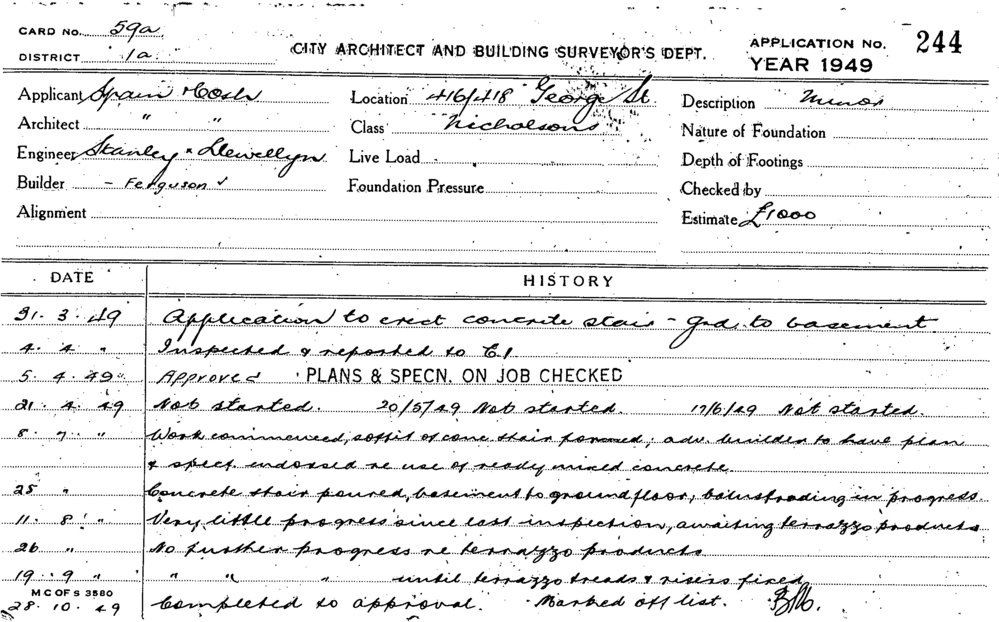 CARD NO. 59a
DISTRICT 1a
CITY ARCHITECT AND BUILDING SURVEYOR'S DEPT.
APPLICATION NO. 244
YEAR 1949
Applicant Spain & Cosh
Architect " "
Engineer Stanley & Llewellyn
Builder - Ferguson
Alignment
Location 416/418 George St.
Class Nicholsons
Live Load
Foundation Pressure
Description Minor
Nature of Foundation
Depth of Footings
Checked by
Estimate £1000
DATE HISTORY
31. 3. 49 Application to erect concrete stair - grd. to basement.
4. 4 " Inspected & reported to C.I
5. 4. 49 Approved PLANS & SPECN. ON JOB CHECKED
21. 4. 49 Not started. 20/5/49 Not started. 17/6/49 Not started.
8. 7 " Work commenced, soffit of conc stair formed; adv. builder to have plan
& specf. endorsed re use of ready mixed concrete.
25 " Concrete stair poured, basement to ground floor, balustrading in progress.
11. 8 " Very little progress since last inspection, awaiting terrazzo products
26 " No further progress re terrazzo products
19. 9 " " " " until terrazzo treads & risers fixed
M C OF S 3580
28. 10. 49 Completed to approval. Marked off list.